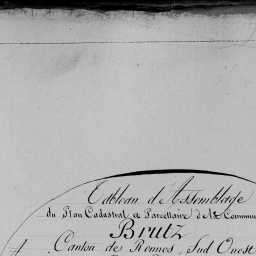 Tableau d'Assemblage
du Plan Cadastral et Parcellaire de la Commun
Brutz
Canton de Rennes, Sud Ouest